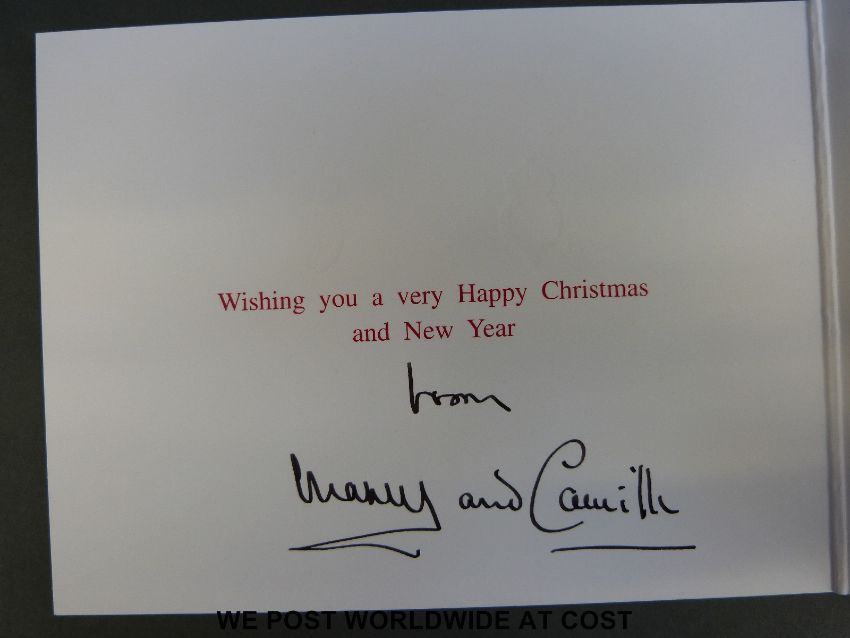 Wishing you a very Happy Christmas
and New Year
from
Charles and Camilla
WE POST WORLDWIDE AT COST